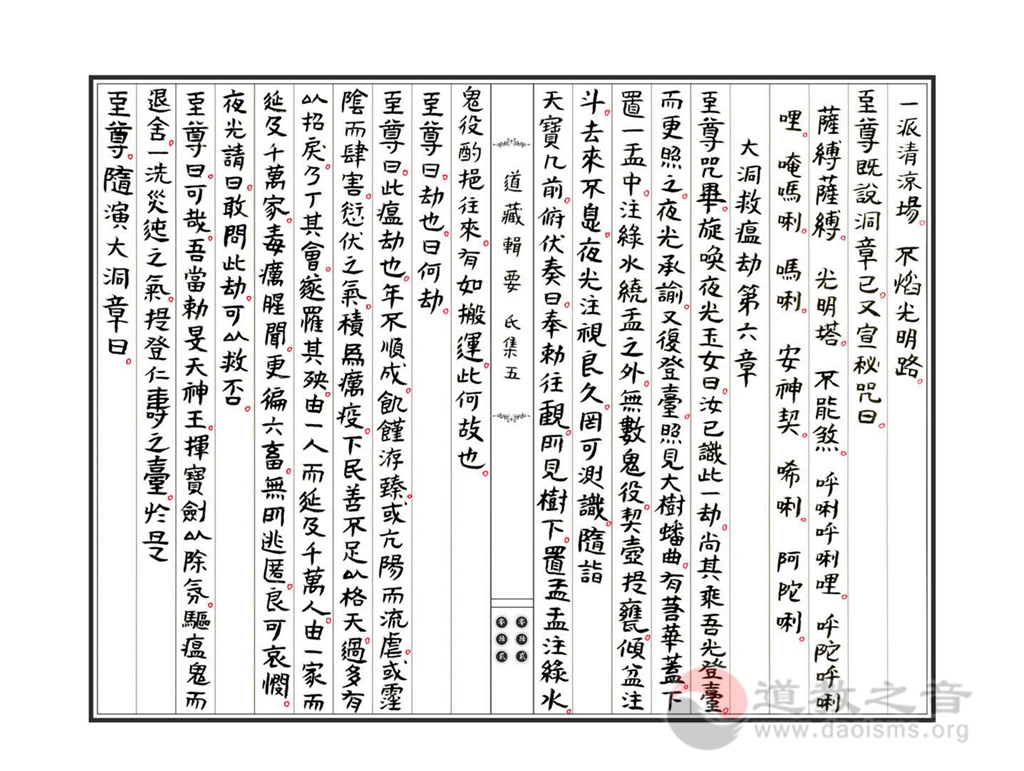 一派清涼場。不焰光明路。
至尊既說洞章已。又宣秘咒曰。
薩縛薩縛。光明塔。不能煞。呼唎呼唎哩。呼陀呼唎
哩。唵嗎唎。嗎唎。安神契。唏唎。阿陀唎。
大洞救瘟劫第六章
至尊咒畢。旋喚夜光玉女曰。汝已識此一劫。尚其乘吾光登臺。
而更照之。夜光承諭。又復登臺。照見大樹蟠曲。有荅華蓋。下
置一盂。中注綠水。繞盂之外。無數鬼役。契壺提甕。傾盆注
斗。去來不息。夜光注視良久。罔可測識。隨詣
天寶几前。俯伏奏曰。奉勅往觀。所見樹下。置盂。盂注綠水。
道藏輯要 氏集五
零陸貳
零陸貳
鬼役酌挹往來。有如搬運。此何故也。
至尊曰。劫也。曰何劫。
至尊曰。此瘟劫也。年不順成。飢饉洊臻。或亢陽而流虐。或霪
陰而肆害。愆伏之氣。積爲癘疫。下民善不足以格天。過多有
以招戾。乃丁其會。遂罹其殃。由一人而延及千萬人。由一家而
延及千萬家。毒癘腥聞。更徧六畜。無所逃匿。良可哀憫。
夜光請曰。敢問此劫。可以救否。
至尊曰。可哉。吾當勅旻天神王。揮寶劍以除氛。驅瘟鬼而
退舍。一洗災沌之氣。提登仁壽之臺。於是
至尊。隨演大洞章曰。
道教之音
www.daoisms.org